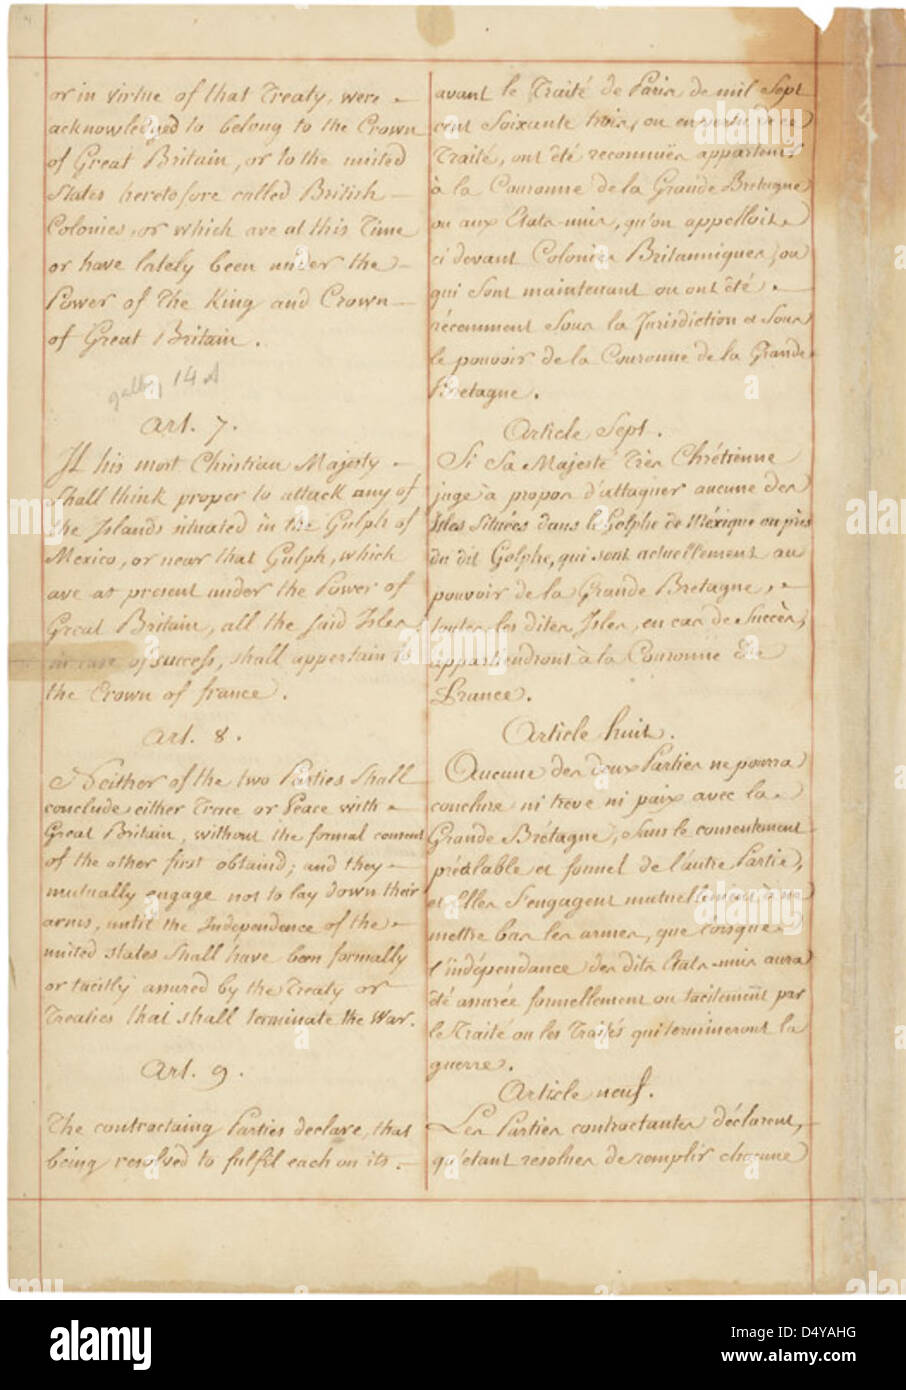 or in virtue of that Treaty, were
acknowledged to belong to the Crown
of Great Britain, or to the united
States heretofore called British
Colonies, or which are at this Time
or have lately been under the
Power of The King and Crown
of Great Britain.
14 A
Art. 7.
If his most Christian Majesty
shall think proper to attack any of
the Islands situated in the Gulph of
Mexico, or near that Gulph, which
are at present under the Power of
Great Britain, all the said Isles,
in case of success, shall appertain to
the Crown of france.
Art. 8.
Neither of the two Parties shall
conclude either Truce or Peace with
Great Britain, without the formal consent
of the other first obtain'd; and they
mutually engage not to lay down their
arms, until the Independence of the
united states shall have been formally
or tacitly assured by the Treaty or
Treaties that shall terminate the War.
Art. 9.
The contracting Parties declare, that
being resolved to fulfil each on its
avant le Traité de Paris de mil Sept
cent Soixante trois, ou en vertu de ce
Traité, ont été reconnües appartenir
à la Couronne de la Grande Bretagne
ou aux Etats-unis, qu'on appelloit
ci devant Colonies Britanniques, ou
qui sont maintenant ou ont été
récemment sous la Jurisdiction et sous
le pouvoir de la Couronne de la Grande
Bretagne.
Article Sept.
Si Sa Majesté Très Chrétienne
juge à propos d'attaquer aucune des
Isles situées dans le Golphe de Méxique ou près
du dit Golphe, qui sont actuellement au
pouvoir de la Grande Bretagne,
toutes les dites Isles, en cas de Succès,
appartiendront à la Couronne de
France.
Article huit.
Aucune des deux Parties ne pourra
conclure ni treve ni paix avec la
Grande Brétagne, sans le consentement
préalable et formel de l'autre Partie,
et Elles s'engagent mutuellement à ne
mettre bas les armes, que lorsque
l'indépendance des dits Etats-unis aura
été assurée formellement ou tacitement par
le Traité ou les Traités qui termineront la
guerre.
Article neuf.
Les Parties contractantes déclarent,
qu'étant resolues de remplir chacune
alamy
Image ID: D4YAHG
www.alamy.com